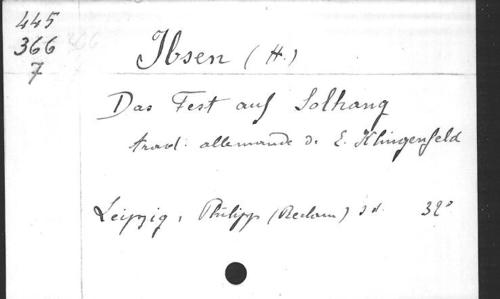 445
366
7
Ibsen (H.)
Das Fest auf Solhang
trad. allemande d. E. Klingenfeld
Leipzig, Philipp (Reclam) s d. 32°